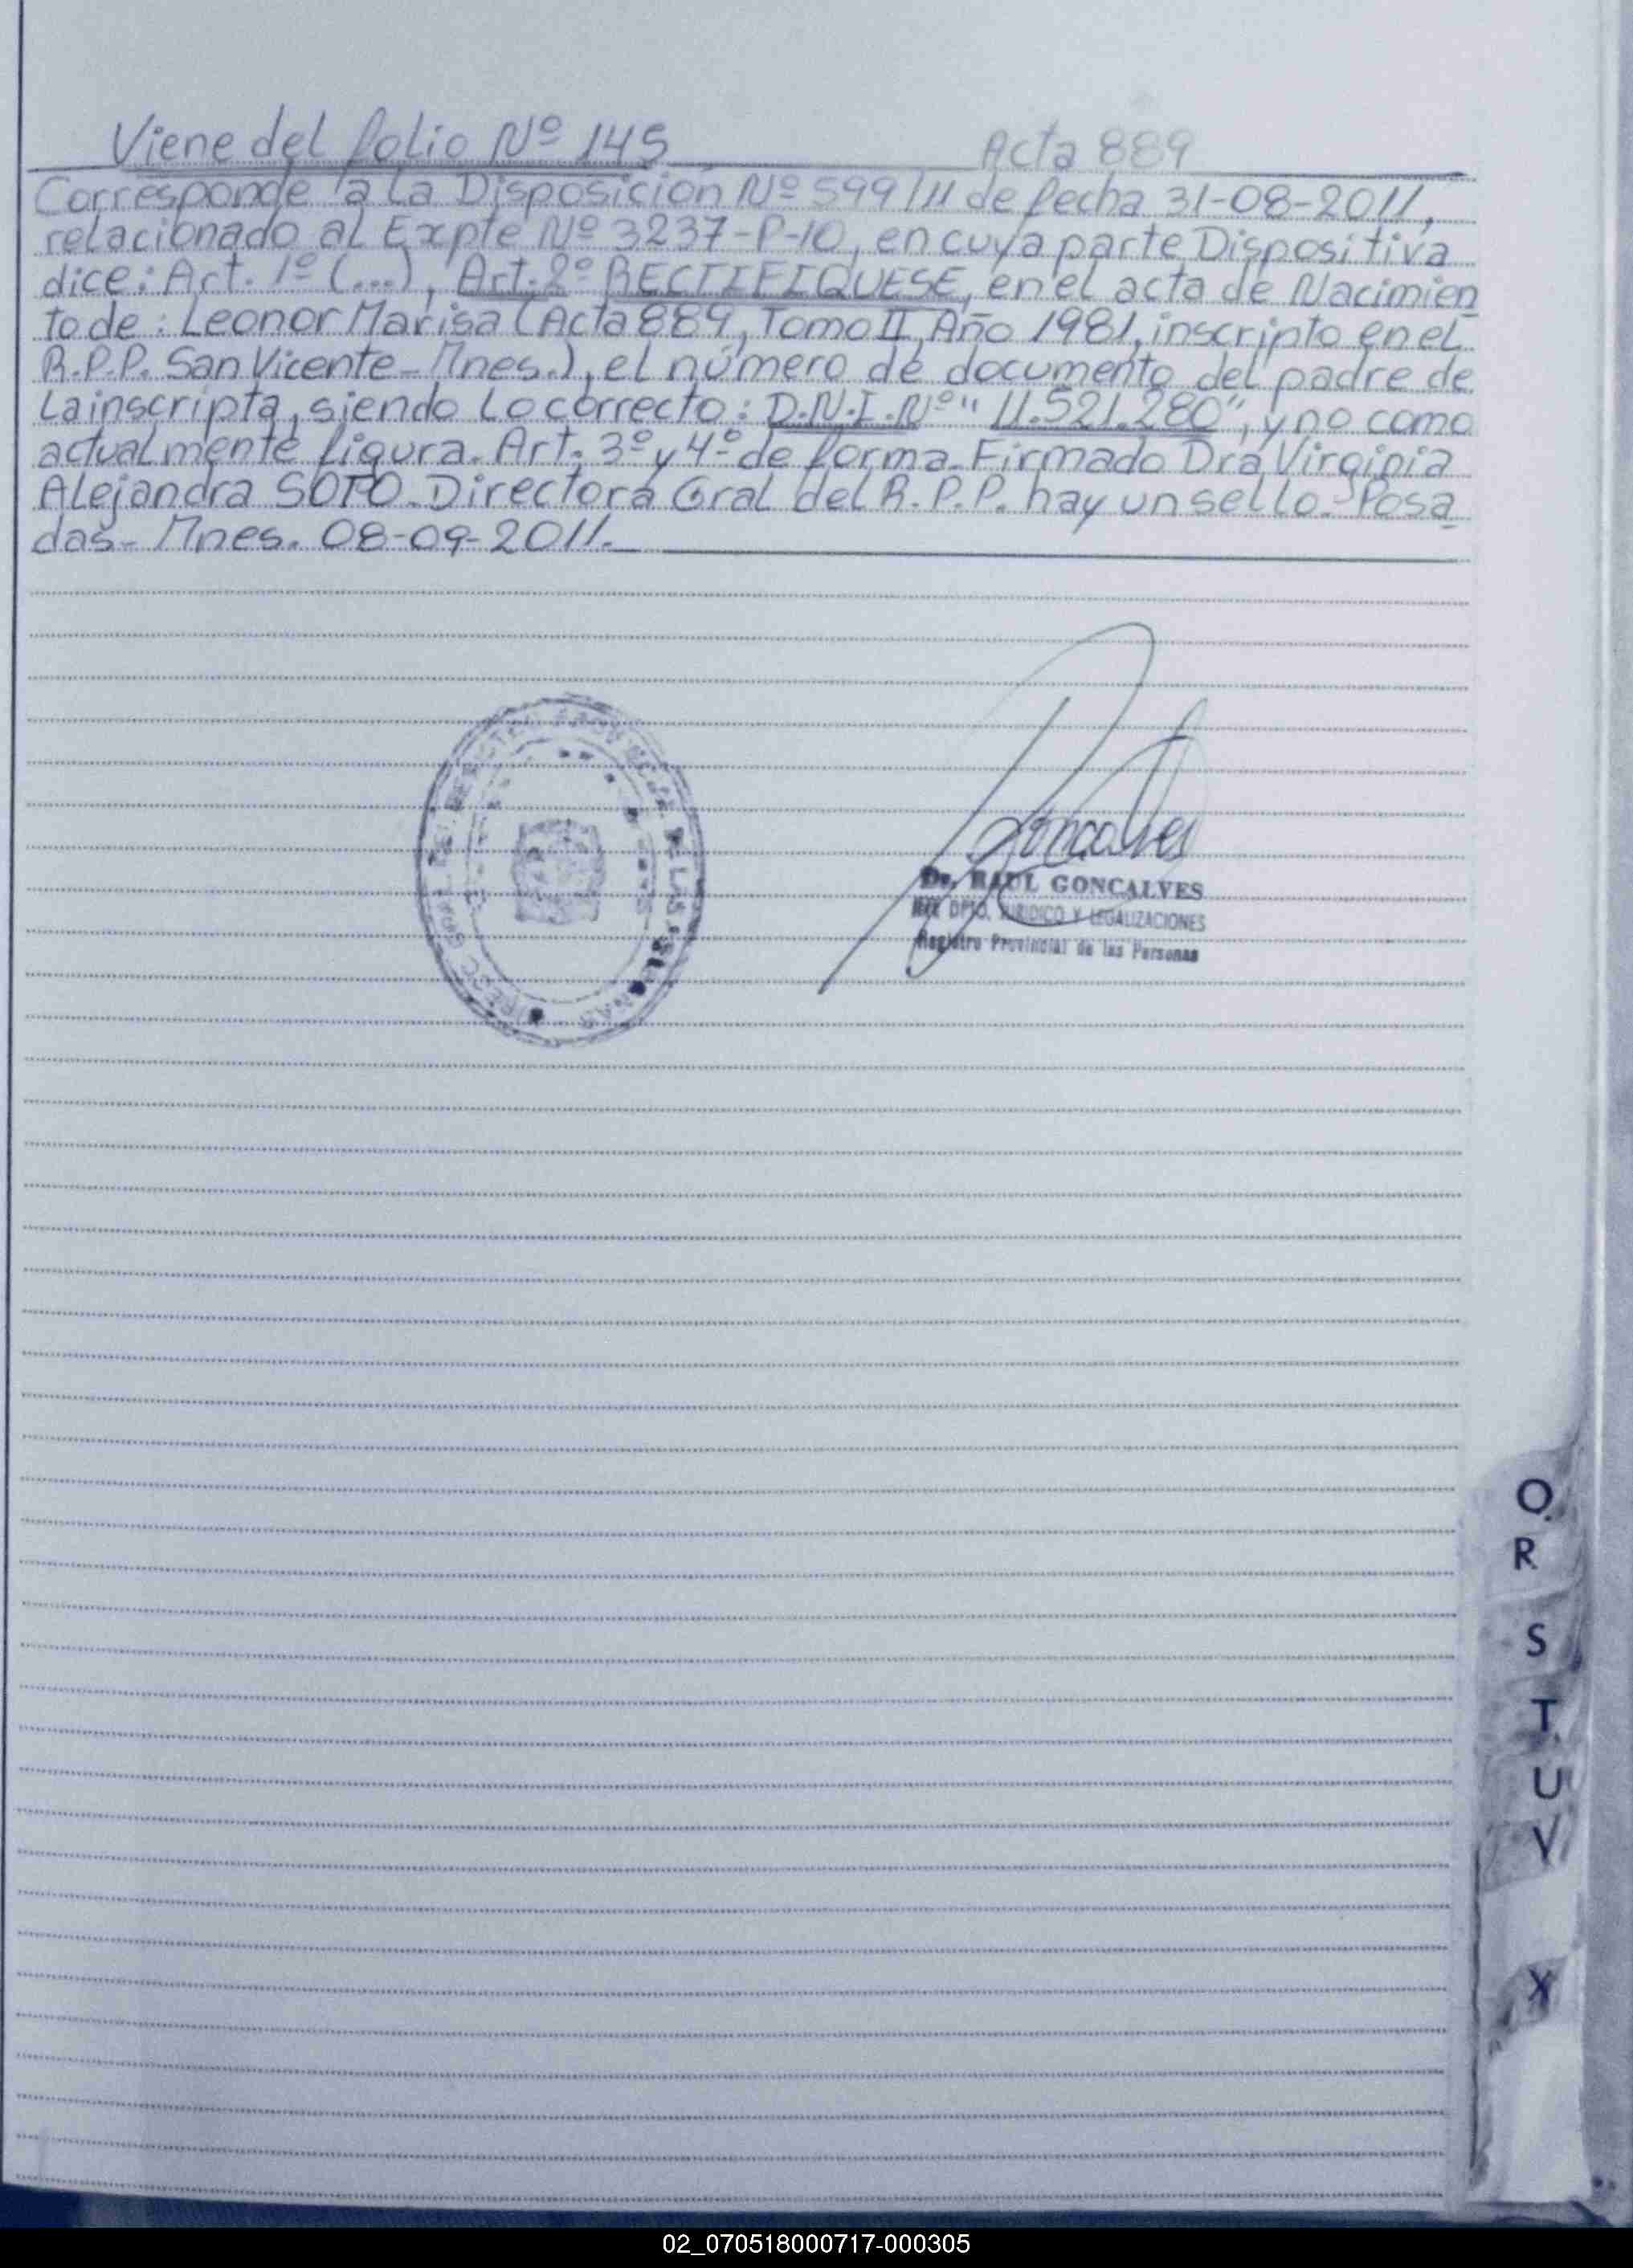 Viene del folio Nº 145 Acta 889
Corresponde a la Disposición Nº 599/11 de fecha 31-08-2011,
relacionado al Expte Nº 3237-P-10, en cuya parte Dispositiva
dice: Art. 1º (...), Art. 2º RECTIFIQUESE, en el acta de Nacimien
to de: Leonor Marisa (Acta 889, Tomo II, Año 1981, inscripto en el
R.P.P. San Vicente - Mnes.), el número de documento del padre de
la inscripta, siendo lo correcto: D.N.I. Nº "11.521.280", y no como
actualmente figura. Art. 3º y 4º de forma. Firmado Dra Virginia
Alejandra SOTO. Directora Gral del R.P.P. hay un sello. Posa
das - Mnes. 08-09-2011.
Goncalves
Dr. RAUL GONCALVES
DPTO. JURIDICO Y LEGALIZACIONES
Registro Provincial de las Personas
Q
R
S
T
U
V
X
02_070518000717-000305